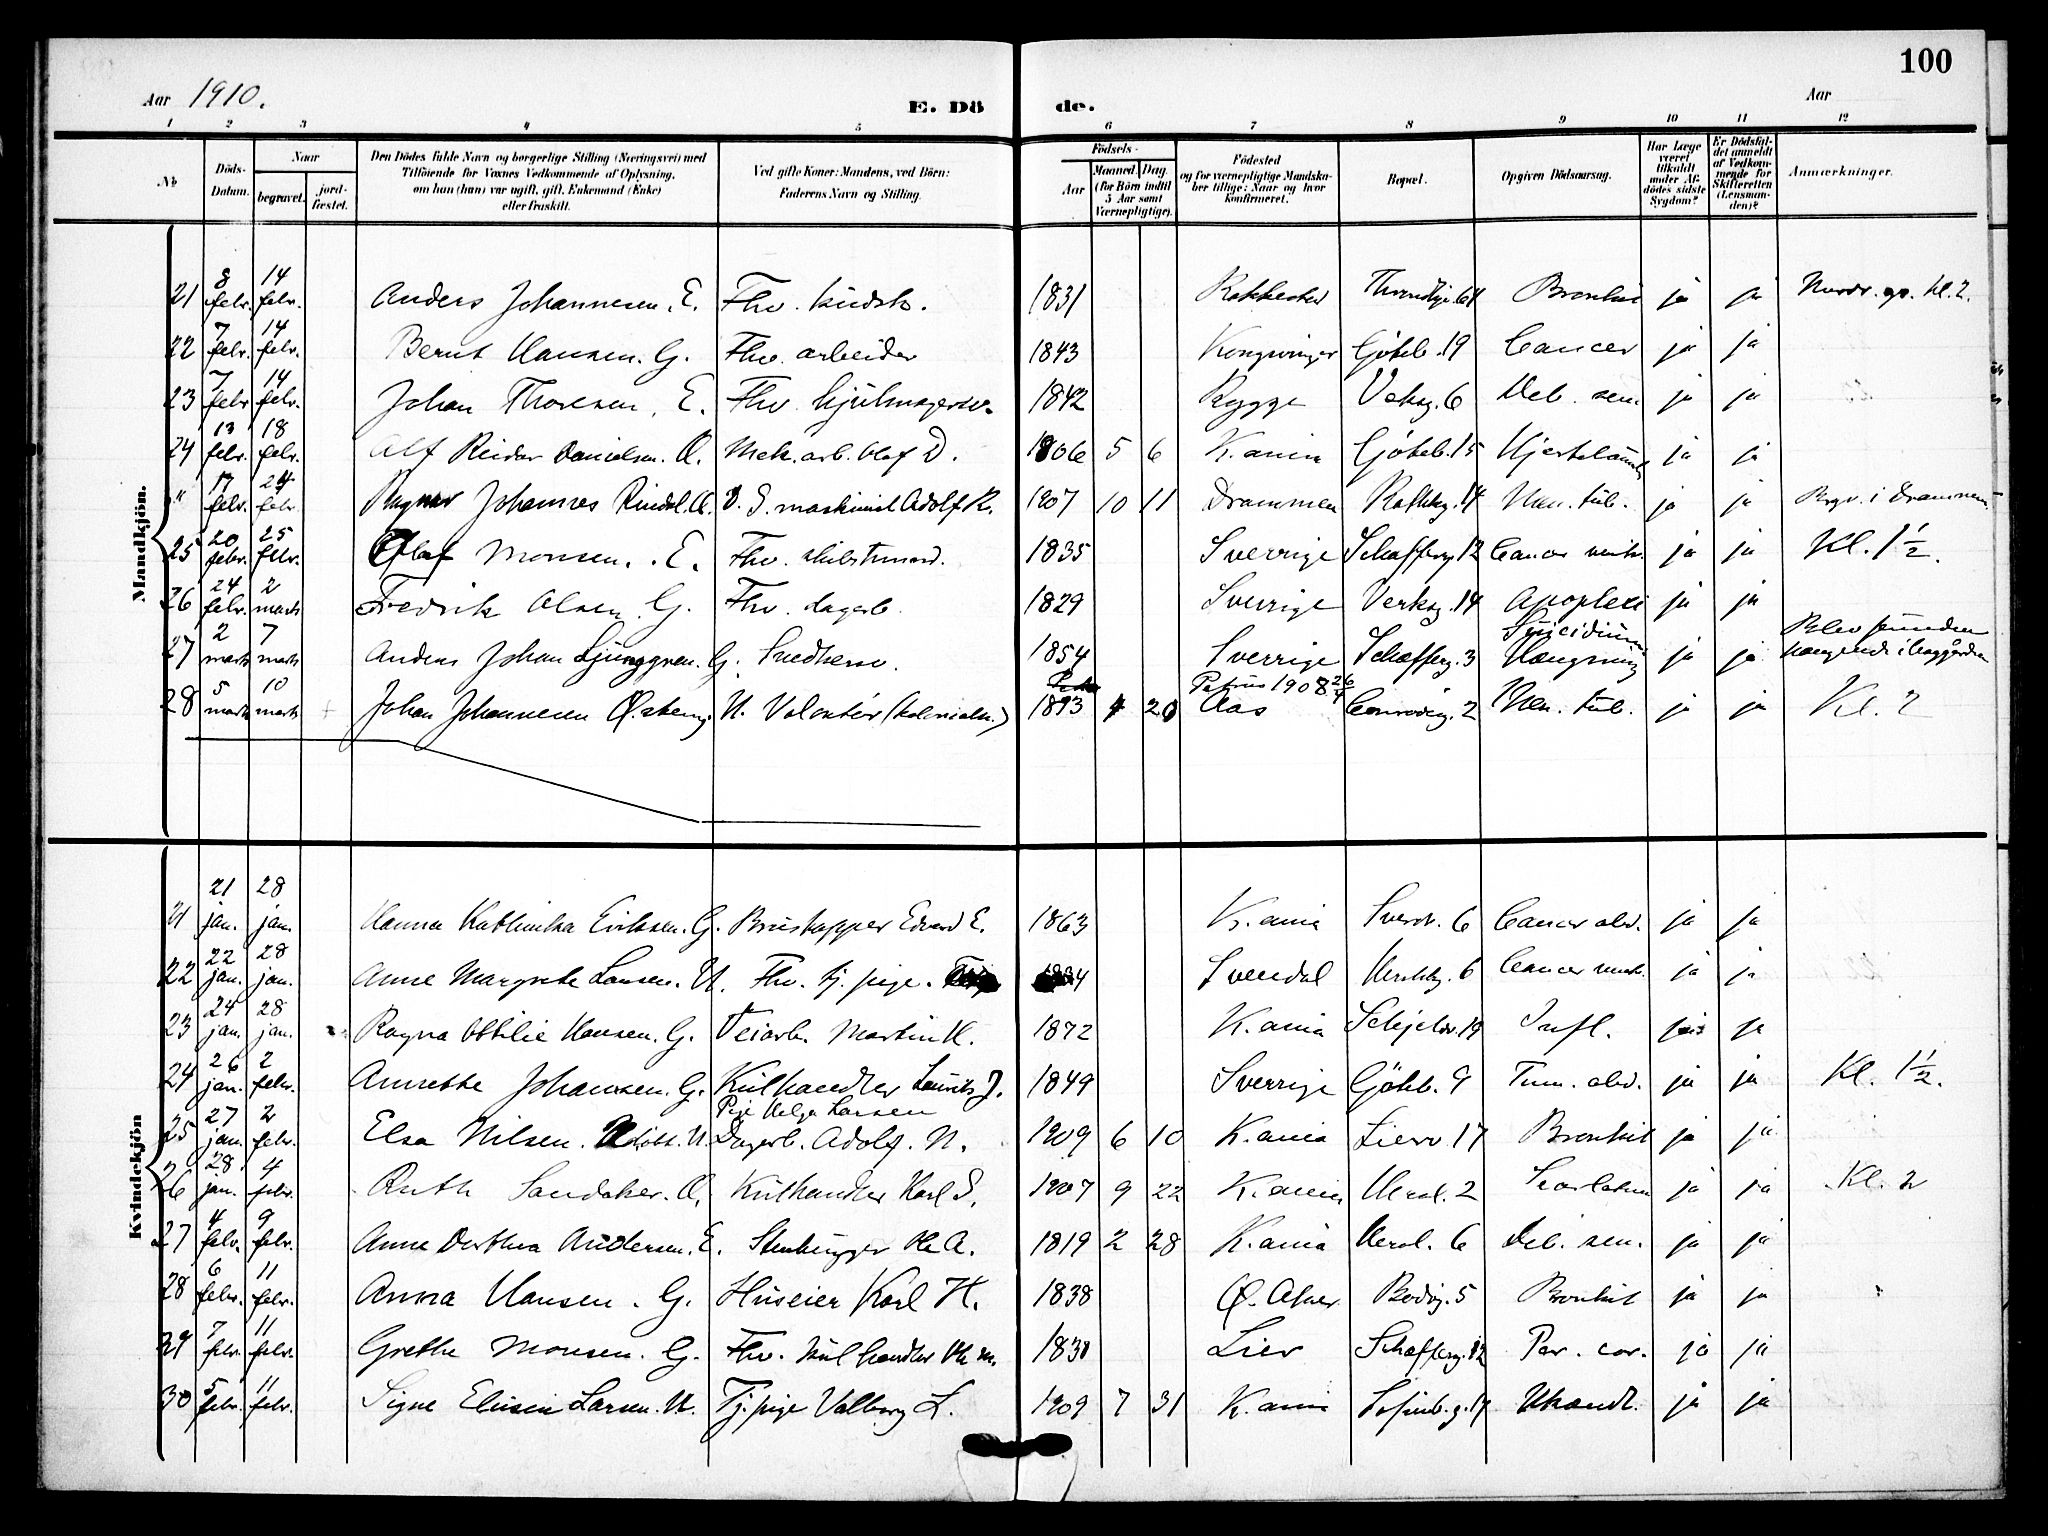 100
Aar 1910.
E. Dö de.
Aar
1 2 3 4 5 6 7 8 9 10 11 12
No.
Döds-Datum.
Naar begravet. jordfæstet.
Den Dödes fulde Navn og borgerlige Stilling (Næringsvei) med Tilföiende for Voxnes Vedkommende af Oplysning, om han (hun) var ugift, gift, Enkemand (Enke) eller fraskilt.
Ved gifte Koner: Mandens, ved Börn: Faderens Navn og Stilling.
Födsels-
Aar
Maaned. Dag. (for Börn indtil 5 Aar samt Værnepligtige).
Födested og for værnepligtige Mandskaber tillige: Naar og hvor konfirmeret.
Bopæl.
Opgiven Dödsaarsag.
Har Læge været tilkaldt under Afdödes sidste Sygdom?
Er Dödsfaldet anmeldt af Vedkommende for Skifteretten (Lensmanden)?
Anmærkninger.
Mandkjön.
21 8 febr. 14 febr. Anders Johannesen. E. Fhv. kudsk. 1831 Rakkestad 64 Bronkit ja ja Kl. 2.
22 7 febr. 14 febr. Bernt Hansen. G. Fhv. arbeider 1843 Kongsvinger Göteb. 19 Cancer ja ja
23 7 febr 14 febr. Johan Thoresen. E. Fhv. hjulmagersv. 1842 Rygge 6 Deb. sen. ja ja
24 13 febr. 18 febr. Alf Reidar Danielsen. U. Mek. arb. Olaf D. 1906 5 6 K.ania Göteb. 15 ja ja
" 17 febr. 24 febr. Ragnar Johannes Rindal. U. maskinist Adolf R. 1907 10 11 Drammen 14 Men. tub. ja ja Begr. i Drammen
25 20 febr. 25 febr. Olaf Monsen. E. Fhv. 1835 Sverrige Schafferg. 12 Cancer ventr. ja ja Kl. 1½.
26 24 febr. 2 marts Fredrik Olsen. G. Fhv. lagerb. 1829 Sverrige Verksg. 14 Apoplexi ja ja
27 2 marts 7 marts Anders Johan Ljunggren. G. Snedkersv. 1854 Sverrige Schafferg. 3 Suicidium Hængning ja ja Blev funden hængende i baggården
28 5 marts 10 marts Johan Johannesen Østeng. U. Volontör (kolonialh.) 1893 4 20 Petrus 1908 26/4 Aas Conradig. 2 Men. tub. ja ja Kl. 2
Kvindekjön
21 21 jan. 28 jan. Hanna Kathinka Eriksen. G. Brustapper Edvard E. 1863 K.ania Sverdr. 6 Cancer abd. ja ja
22 22 jan. 28 jan. Anne Margrethe Larsen. U. Fhv. tj. pige. Svendal 6 Cancer ventr. ja ja
23 24 jan. 28 jan. Ragna Ottilie Hansen. G. Veiarb. Martin H. 1872 K.ania 19 Infl. ja ja
24 26 jan. 2 febr. Annette Johansen. G. Kulhandler Laurits J. 1849 Sverrige Götb. 9 Tum. abd. ja ja Kl. 1½.
Pige Helga Larsen
25 27 jan. 2 febr. Elsa Nilsen. U. Dagarb. Adolf N. 1909 6 10 K.ania Lierv. 17 Bronkit ja ja
26 28 jan. 4 febr. Ruth Sandaker. U. Kulhandler Karl S. 1907 9 22 K.ania Heral. 2 Scarlatina ja ja Kl. 2
27 4 febr. 9 febr. Anne Dorthea Andersen. E. Stenhugger A. 1819 2 28 K.ania Heral. 6 Deb. sen. ja ja
28 6 febr. 11 febr. Anna Hansen. G. Huseier Karl H. 1838 Ø. Aker Bodøg. 5 Bronkit ja ja
29 7 febr. 11 febr. Grethe Monsen. G. Fhv. kulhandler M. 1831 Lier Schafferg. 12 Par. cor. ja ja
30 5 febr. 11 febr. Signe Larsen. U. Tj. pige Valborg L. 1909 7 31 K.ania Sofienb. g. 17 Ukendt. ja ja